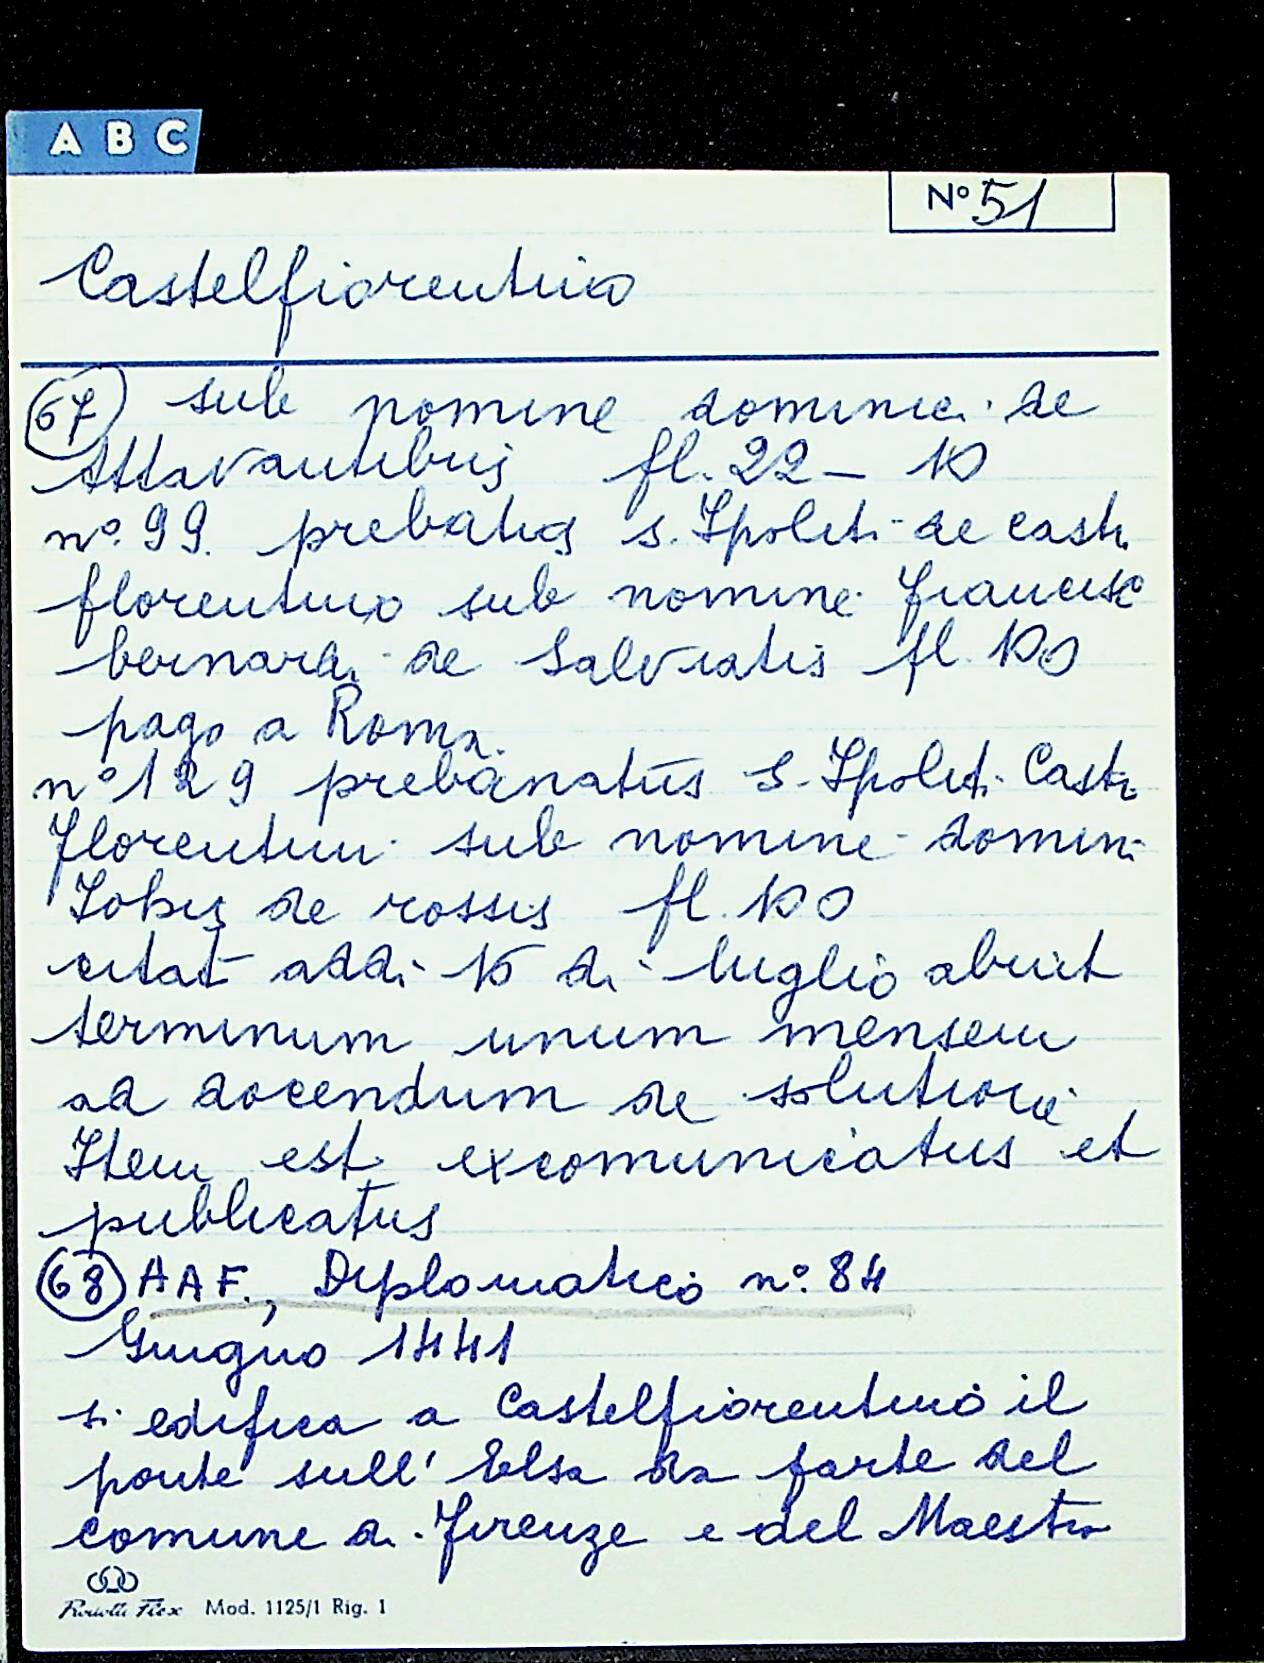 A B C
N° 51
Castelfiorentino
67 sub nomine dominici de
Attavantibus fl. 22 – 10
n° 99. prebatus s. Ipoliti de castr.
florentino sub nomine francisc
bernardi de Salviatis fl. 100
pago a Roma.
n° 129 prebanatus S. Ipoliti Castri
Florentini sub nomine domini
Iohis de rossis fl. 100
citat addi 10 di luglio abuit
terminum unum mensem
ad docendum de solutione
Item est excomunicatus et
publicatus
68 A A F., Diplomatico n° 84
Giugno 1441
si edifica a Castelfiorentino il
ponte sull' Elsa da parte del
comune di Firenze e del Maestro
Mod. 1125/1 Rig. 1